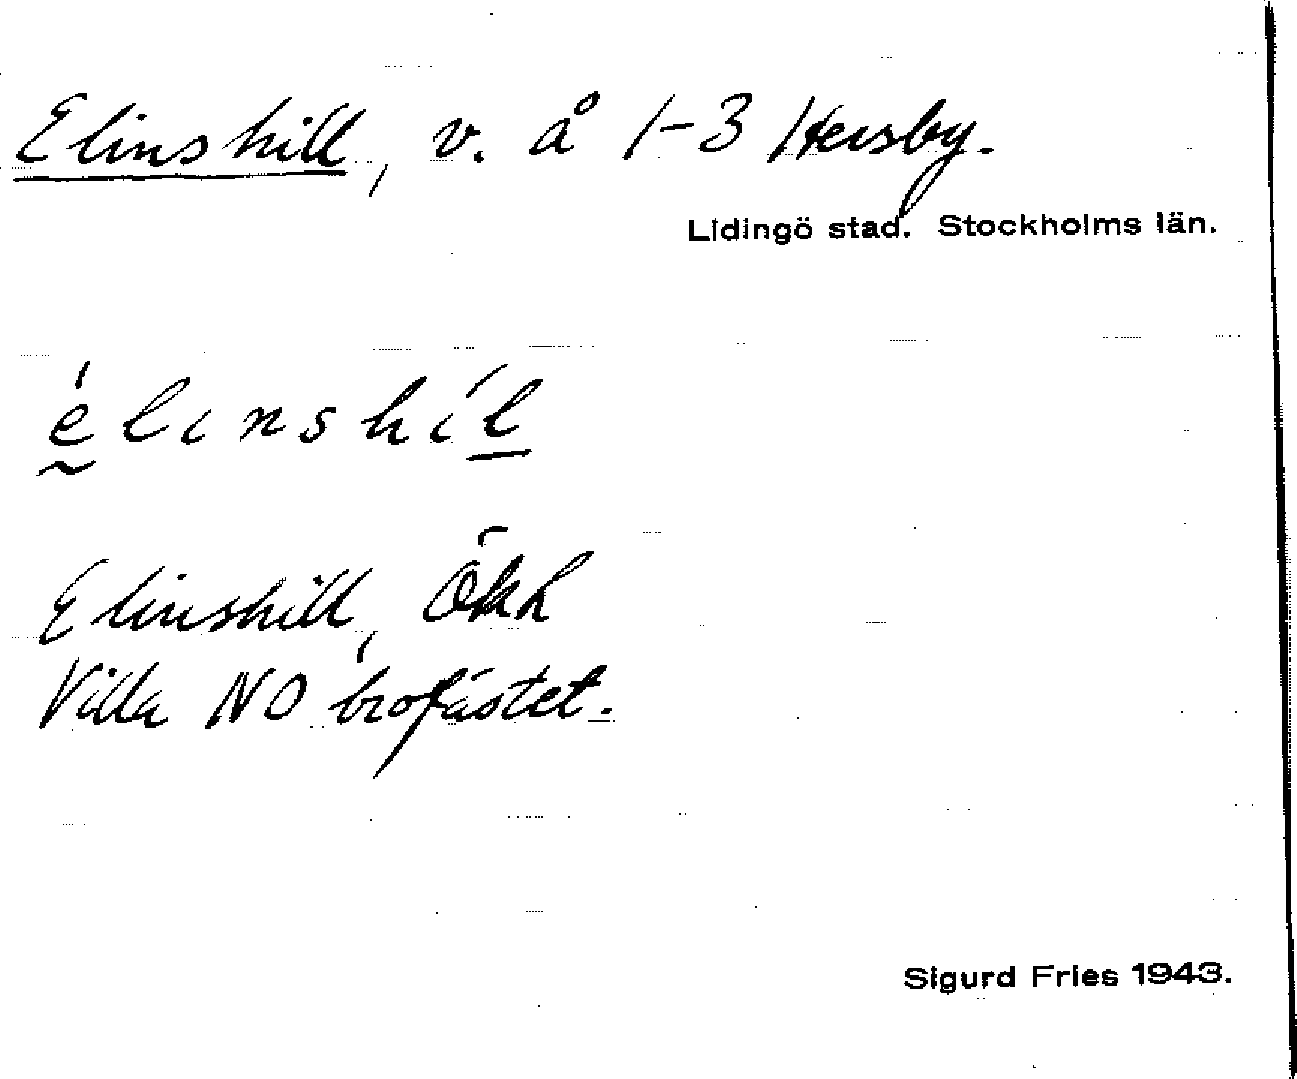 Elinshill, v. å 1-3 Hersby.
Lidingö stad. Stockholms län.
élinshíl
Elinshill, Ökk
Villa NO brofästet.
Sigurd Fries 1943.